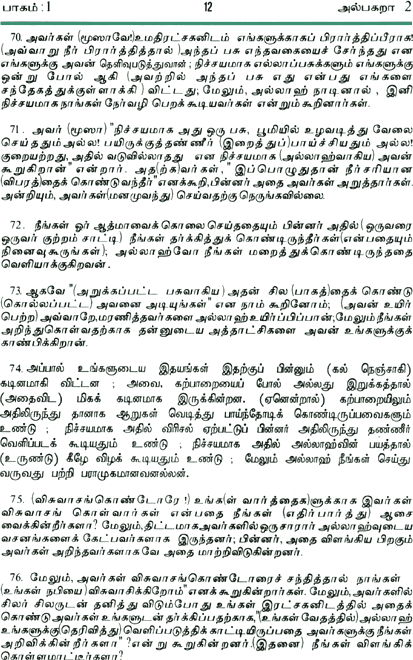 பாகம் : 1 12 அல்பகறா 2
70. அவர்கள் (மூஸாவே!) உமதிரட்சகனிடம் எங்களுக்காகப் பிரார்த்திப்பீராக!
(அவ்வாறு நீர் பிரார்த்தித்தால்) அந்தப் பசு எந்தவகையைச் சேர்ந்தது என
எங்களுக்கு அவன் தெளிவுபடுத்துவான் ; நிச்சயமாக எல்லாப்பசுக்களும் எங்களுக்கு
ஒன்று போல் ஆகி (அவற்றில் அந்தப் பசு எது என்பது எங்களை
சந்தேகத்துக்குள்ளாக்கி) விட்டது; மேலும், அல்லாஹ் நாடினால் , இனி
நிச்சயமாக நாங்கள் நேர்வழி பெறக் கூடியவர்கள் என்றும் கூறினார்கள்.
71 . அவர் (மூஸா) "நிச்சயமாக அது ஒரு பசு, பூமியில் உழவடித்து வேலை
செய்ததும் அல்ல! பயிருக்குத்தண்ணீர் (இறைத்துப்)பாய்ச்சியதும் அல்ல!
குறையற்றது, அதில் வடுவில்லாதது என நிச்சயமாக (அல்லாஹ்வாகிய) அவன்
கூறுகிறான்" என்றார். அத(ற்க)வர்கள் , " இப்பொழுதுதான் நீர்சரியான
(விபரத்)தைக் கொண்டுவந்தீர்" எனக்கூறி, பின்னர் அதை அவர்கள் அறுத்தார்கள்.
அன்றியும், அவர்கள் (மனமுவந்து) செய்வதற்கு நெருங்கவில்லை.
72 . நீங்கள் ஓர் ஆத்மாவைக் கொலை செய்ததையும் பின்னர் அதில் (ஒருவரை
ஒருவர் குற்றம் சாட்டி) நீங்கள் தர்க்கித்துக் கொண்டிருந்தீர்கள் (என்பதையும்
நினைவு கூருங்கள்); அல்லாஹ்வோ நீங்கள் மறைத்துக்கொண்டிருந்ததை
வெளியாக்குகிறவன் .
73. ஆகவே "(அறுக்கப்பட்ட பசுவாகிய) அதன் சில (பாகத்)தைக் கொண்டு
(கொல்லப்பட்ட) அவனை அடியுங்கள்" என நாம் கூறினோம்; (அவன் உயிர்
பெற்ற) அவ்வாறே, மரணித்தவர்களை அல்லாஹ் உயிர்ப்பிப்பான்; மேலும் நீங்கள்
அறிந்துகொள்வதற்காக தன்னுடைய அத்தாட்சிகளை அவன் உங்களுக்குக்
காண்பிக்கிறான்.
74. அப்பால் உங்களுடைய இதயங்கள் இதற்குப் பின்னும் (கல் நெஞ்சாகி)
கடினமாகி விட்டன ; அவை, கற்பாறையைப் போல் அல்லது இறுக்கத்தால்
(அதைவிட) மிகக் கடினமாக இருக்கின்றன. (ஏனென்றால்) கற்பாறையிலும்
அதிலிருந்து தானாக ஆறுகள் வெடித்து பாய்ந்தோடிக் கொண்டிருப்பவைகளும்
உண்டு ; நிச்சயமாக அதில் விரிசல் ஏற்பட்டுப் பின்னர் அதிலிருந்து தண்ணீர்
வெளிப்படக் கூடியதும் உண்டு ; நிச்சயமாக அதில் அல்லாஹ்வின் பயத்தால்
(உருண்டு) கீழே விழக் கூடியதும் உண்டு ; மேலும் அல்லாஹ் நீங்கள் செய்து
வருவது பற்றி பராமுகமானவனல்லன்.
75. (விசுவாசங்கொண்டோரே !) உங்க(ள் வார்த்தைக)ளுக்காக இவர்கள்
விசுவாசங் கொள்வார்கள் என்பதை நீங்கள் (எதிர்பார்த்து) ஆசை
வைக்கின்றீர்களா? மேலும், திட்டமாக அவர்களில் ஒரு சாரார் அல்லாஹ்வுடைய
வசனங்களைக் கேட்பவர்களாக இருந்தனர்; பின்னர், அதை விளங்கிய பிறகும்
அவர்கள் அறிந்தவர்களாகவே அதை மாற்றிவிடுகின்றனர்.
76. மேலும், அவர்கள் விசுவாசங்கொண்டோரைச் சந்தித்தால் நாங்கள்
(உங்கள் நபியை) விசுவாசிக்கிறோம்" எனக் கூறுகின்றார்கள். மேலும், அவர்களில்
சிலர் சிலருடன் தனித்து விடும்போது உங்கள் இரட்சகனிடத்தில் அதைக்
கொண்டு அவர்கள் உங்களுடன் தர்க்கிப்பதற்காக, "(உங்கள் வேதத்தில்) அல்லாஹ்
உங்களுக்கு(தெரிவித்து) வெளிப்படுத்திக் காட்டியிருப்பதை அவர்களுக்கு நீங்கள்
அறிவிக்கின்றீர்களா" ? என்று கூறுகின்றனர். (இதனை) நீங்கள் விளங்கிக்
கொள்ளமாட்டீர்களா?